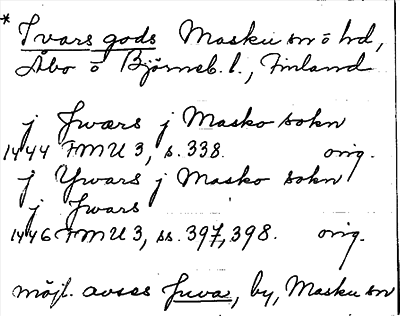 * Ivars gods Masku sn o hd,
Åbo o Björneb. l., Finland
j Jwars j Masko sokn
1444 FMU 3, s. 338. orig.
j Ywars j Masko sokn
j Jwars
1446 FMU 3, ss. 397, 398. orig.
möjl. avses Juva, by, Masku sn